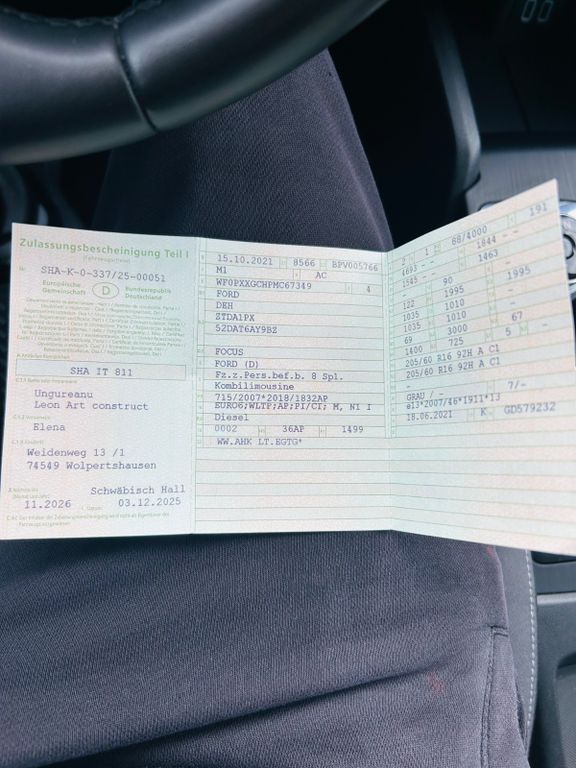 Zulassungsbescheinigung Teil I
(Fahrzeugschein)
Nr. SHA-K-0-337/25-00051
Europäische Gemeinschaft D Bundesrepublik Deutschland
SHA IT 811
Ungureanu
Leon Art construct
Elena
Weidenweg 13 /1
74549 Wolpertshausen
Schwäbisch Hall
11.2026 03.12.2025
15.10.2021 8566 BPV005766
M1 AC
WF0PXXGCHPMC67349 4
FORD
DEH
ZTDA1PX
52DAT6AY9BZ
FOCUS
FORD (D)
Fz.z.Pers.bef.b. 8 Spl.
Kombilimousine
715/2007*2018/1832AP
EURO6;WLTP;AP;PI/CI; M, N1 I
Diesel
0002 36AP 1499
WW.AHK LT.EGTG*
2 1 88/4000 191
4693 - - 1844 - -
1545 - - 1463
- 90
122 1995 1995
1035 1010 -
1035 1010 -
69 3000 67
1400 725 5 -
205/60 R16 92H A C1
205/60 R16 92H A C1
-
GRAD / - 7/-
e13*2007/46*1911*13
18.06.2021 K GD579232